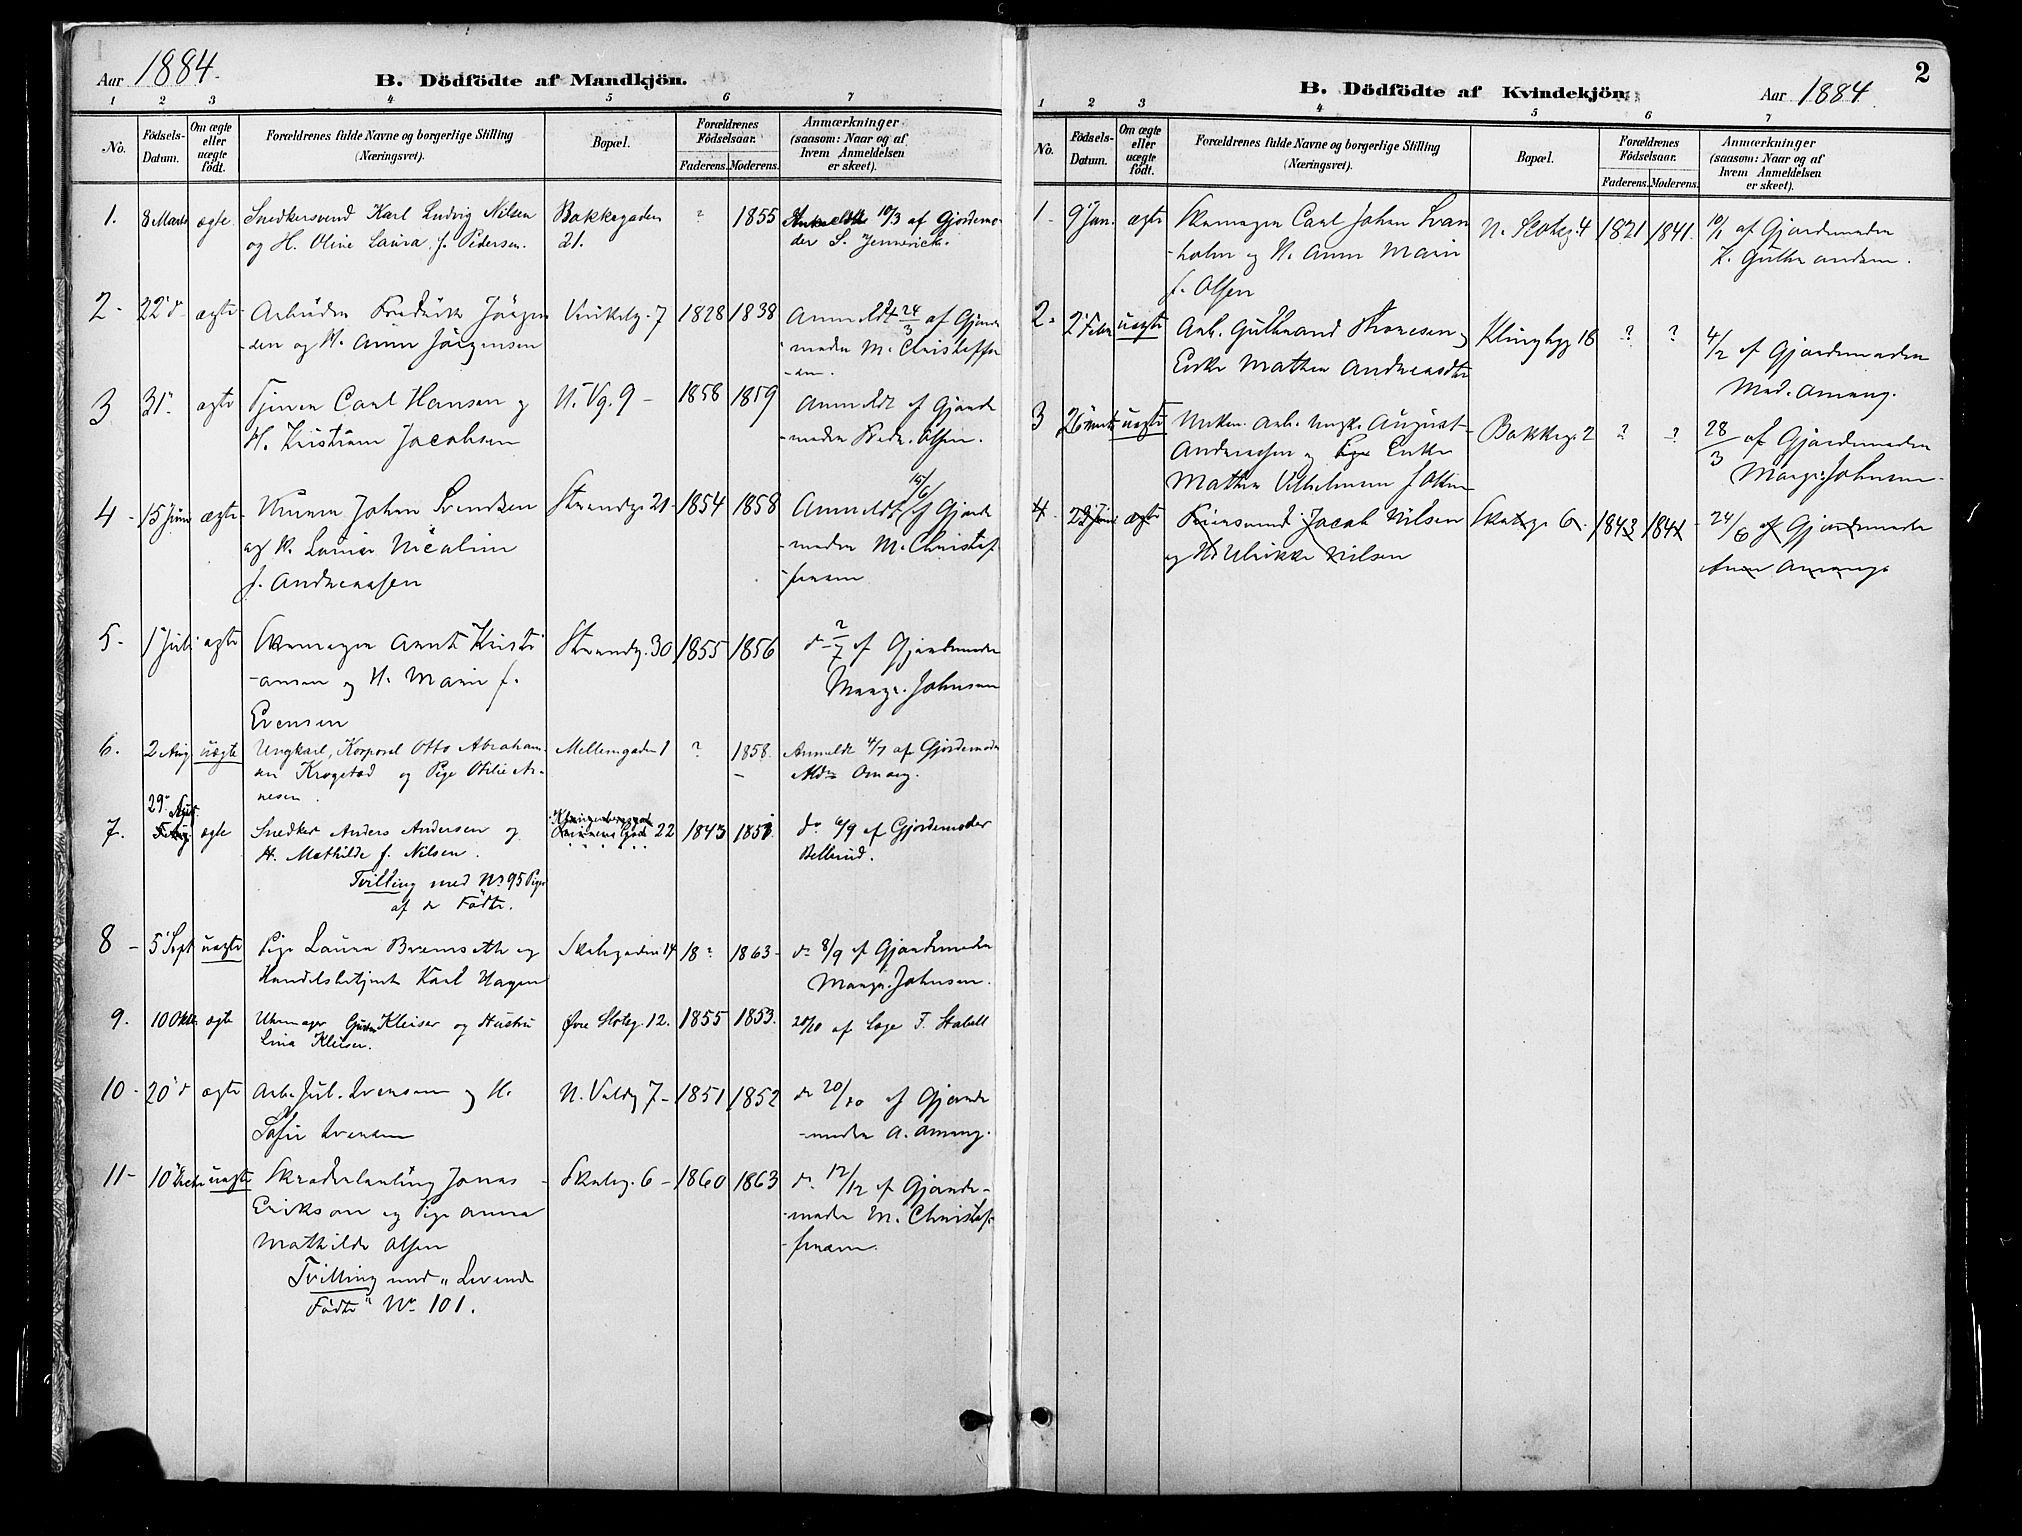 Aar 1884.
B. Dödfödte af Mandkjön.
1 2 3 4 5 6 7
No. Födsels-Datum. Om ægte eller uægte födt. Forældrenes fulde Navne og borgerlige Stilling (Næringsvei). Bopæl. Forældrenes Födselsaar. Faderens. Moderens. Anmærkninger (saasom: Naar og af hvem Anmeldelsen er skeet).
1. 8 Marts ægte Snedkersvend Karl Ludvig Nilsen Bakkegaden ? 1855 Anmeldt 10/3 af Gjordemo-
og H. Oline Laura f. Pedersen. 21. der S. Jennerich.
2 - 22 d ægte Arbeider Fredrik Jörgen Vinkelg. 7 1828 1838 Anmeldt 24/3 af Gjorde
-sen og H. Anne Jörgensen -moder M. Christoffer
-sen.
3 31 ægte Carl Hansen og N. Vg. 9 - 1858 1859 Anmeldt af Gjorde
H. Kristiane Jacobsen -moder Fredr. Olsen.
4 - 15 Juni ægte Murer Johan Svendsen Strandg. 21 - 1854 1858 Anmeldt 15/6 af Gjorde
og H. Lovise Nicoline -moder M. Christof
f. Andreassen -fersen
5 - 1 Juli ægte Skomager Arnt Kristi Strandg. 30 1855 1856 d - 2/7 af Gjordemoder
-ansen og H. Marie f. Margr. Johnsen
Evensen
6. 2 Aug uægte Ungkarl, Korporal Otto Abraham- Mellemgaden 1 ? 1858. Anmeldt 4/7 af Gjordemoder
sen Krogstad og Pige Otilie Ar- Amang.
nesen.
29 Aug.
7. ægte Snedker Anders Andersen og Klingenberggad 22 1843 1851. do 6/9 af Gjordemoder
H. Mathilde f. Nilsen. Bellerud.
Tvilling med No 95 Pige
af de Födte.
8 - 5 Sept uægte Pige Laura Bremseth og Skolegaden 14 18 ? 1863 - do 8/9 af Gjordemoder
Handelsbetjent Karl Hagen Margr. Johnsen.
9. 10 Okt ægte Uhrmager Gustav Kleiser og Hustru Øvre Slotsg. 12. 1855 1853. 20/10 af Læge F. Stabell
Lina Kleiser.
10 - 20 d ægte Arb. Jul. Evensen og H. N. Valdg 7 - 1851 1852 do 20/10 af Gjorde
Sofie Evensen -moder A. Amang.
11 - 10 Dec uægte Skræderlærling Jonas Skoleg. 6 - 1860 1863 do 12/12 af Gjorde-
Erikson og Pige Anna -moder M. Christof-
Mathilde Olsen -fersen.
Tvilling med "Levende
Födte" No 101.
2
B. Dödfödte af Kvindekjön. Aar 1884.
1 2 3 4 5 6 7
No. Födsels-Datum. Om ægte eller uægte födt. Forældrenes fulde Navne og borgerlige Stilling (Næringsvei). Bopæl. Forældrenes Födselsaar. Faderens. Moderens. Anmærkninger (saasom: Naar og af hvem Anmeldelsen er skeet).
1 - 9 Jan. ægte Skomager Carl Johan Svan N. Slotsg. 4 1821 1841. 10/1 af Gjordemoder
-holm og H. Anne Marie K. Gulbrandsen.
f. Olsen
2 - 2 Febr uægte Arb. Gulbrand Thoresen og Klingbgg 18 ? ? 4/2 af Gjordemoder
Enke Mathea Andreasdtr Mad. Amang.
3 26 Marts uægte Arb. Ungk. August Bakkeg. 2 ? ? 28/3 af Gjordemoder
Andreassen og Enke Margr. Johnsen -
Mathea Vilhelmine f Olsen
4 - 22 Juni ægte Jacob Nilsen Skoleg. 6. 1843 1841 24/6 af Gjordemoder
og H. Ulrikke Nilsen Amang